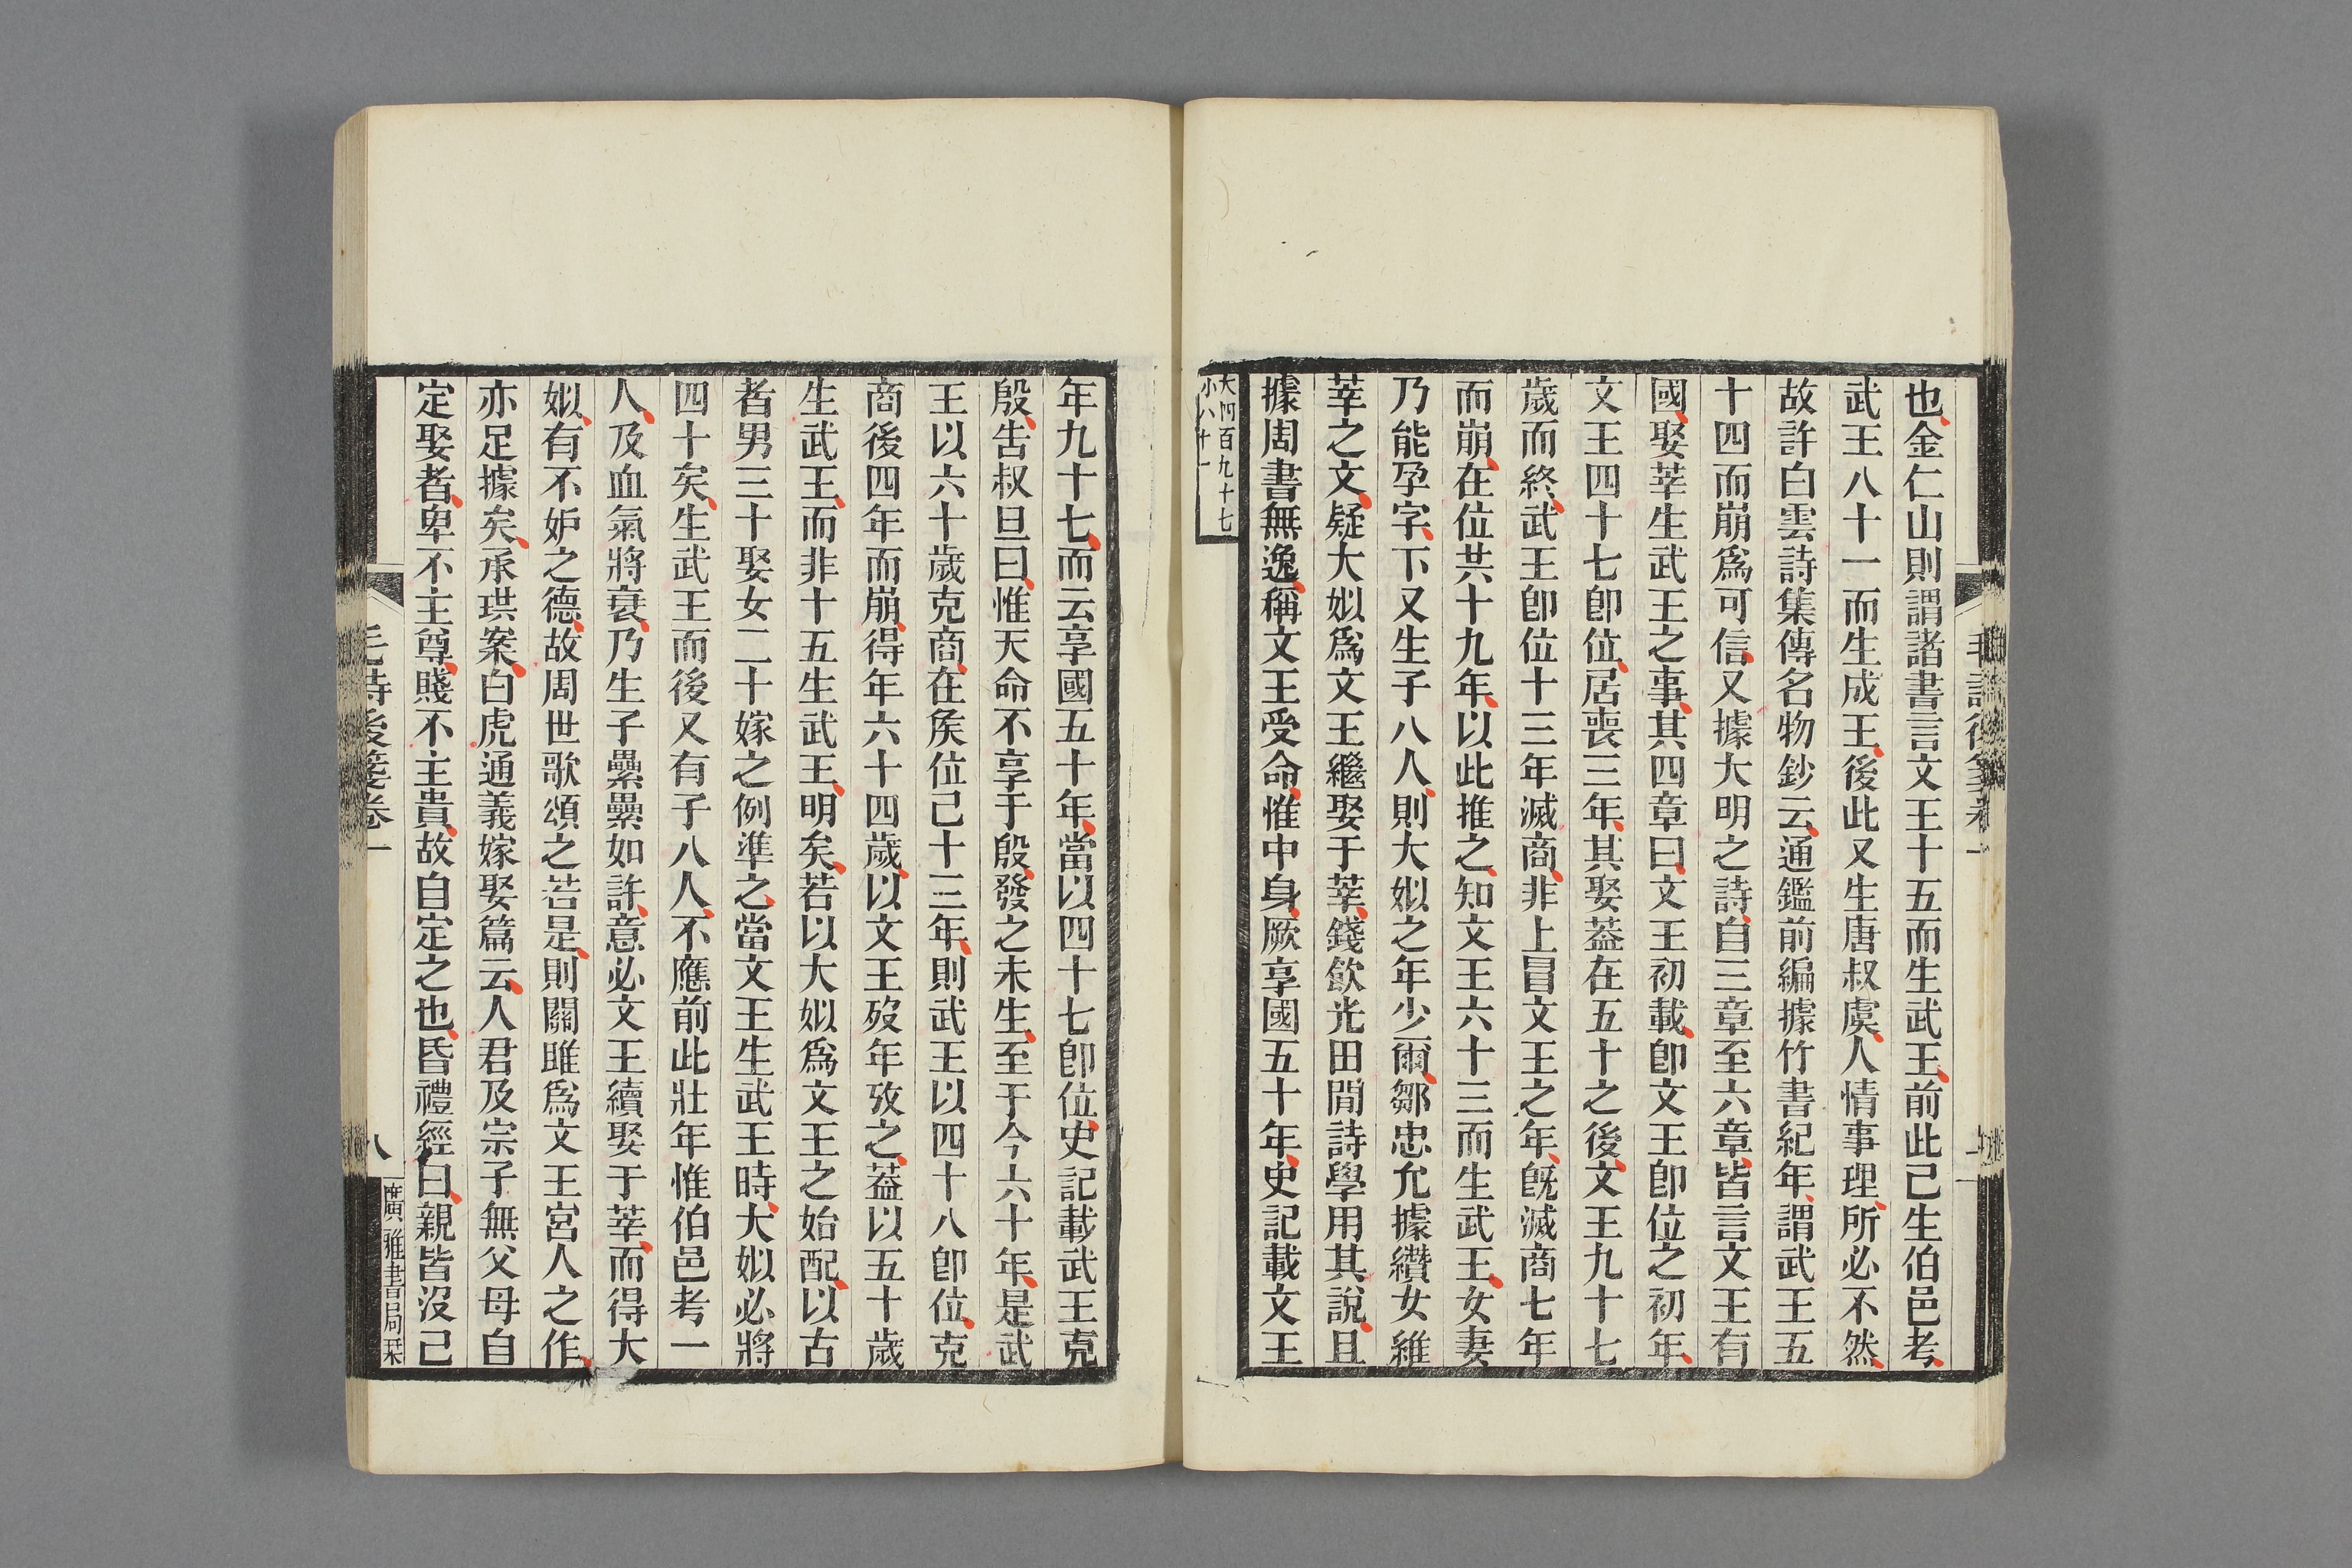 也金仁山則謂諸書言文王十五而生武王前此已生伯邑考
武王八十一而生成王後此又生唐叔虞人情事理所必不然
故許白雲詩集傳名物鈔云通鑑前編據竹書紀年謂武王五
十四而崩爲可信又據大明之詩自三章至六章皆言文王有
國娶莘生武王之事其四章曰文王初載卽文王卽位之初年
文王四十七卽位居喪三年其娶葢在五十之後文王九十七
歲而終武王卽位十三年滅商非上冒文王之年旣滅商七年
而崩在位共十九年以此推之知文王六十三而生武王女妻
乃能孕字下又生子八人則大姒之年少爾鄒忠允據纘女維
莘之文疑大姒爲文王繼娶于莘錢飮光田閒詩學用其說且
據周書無逸稱文王受命惟中身厥享國五十年史記載文王
大四百九十七
小八十一
年九十七而云享國五十年當以四十七卽位史記載武王克
殷告叔旦曰惟天命不享于殷發之未生至于今六十年是武
王以六十歲克商在矦位己十三年則武王以四十八卽位克
商後四年而崩得年六十四歲以文王歿年攷之葢以五十歲
生武王而非十五生武王明矣若以大姒爲文王之始配以古
者男三十娶女二十嫁之例準之當文王生武王時大姒必將
四十矣生武王而後又有子八人不應前此壯年惟伯邑考一
人及血氣將衰乃生子纍纍如許意必文王續娶于莘而得大
姒有不妒之德故周世歌頌之若是則關雎爲文王宮人之作
亦足據矣承珙案白虎通義嫁娶篇云人君及宗子無父母自
定娶者卑不主尊賤不主貴故自定之也昏禮經曰親皆沒己
毛詩後箋卷一
八
廣雅書局栞